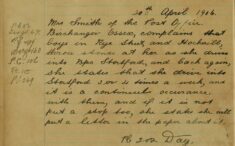 20th April 1914.
Mrs Smith of the Post Office
Birchanger Essex, complains that
boys in Rye Street and Hockerill,
throw stones at her as she drives
into Bps Stortford, and back again,
she states that she drives into
Stortford 2 or 3 times a week, and
it is a continual occurance
with them, and if it is not
put a stop too, she states she will
put a letter in the paper about it.
Day.